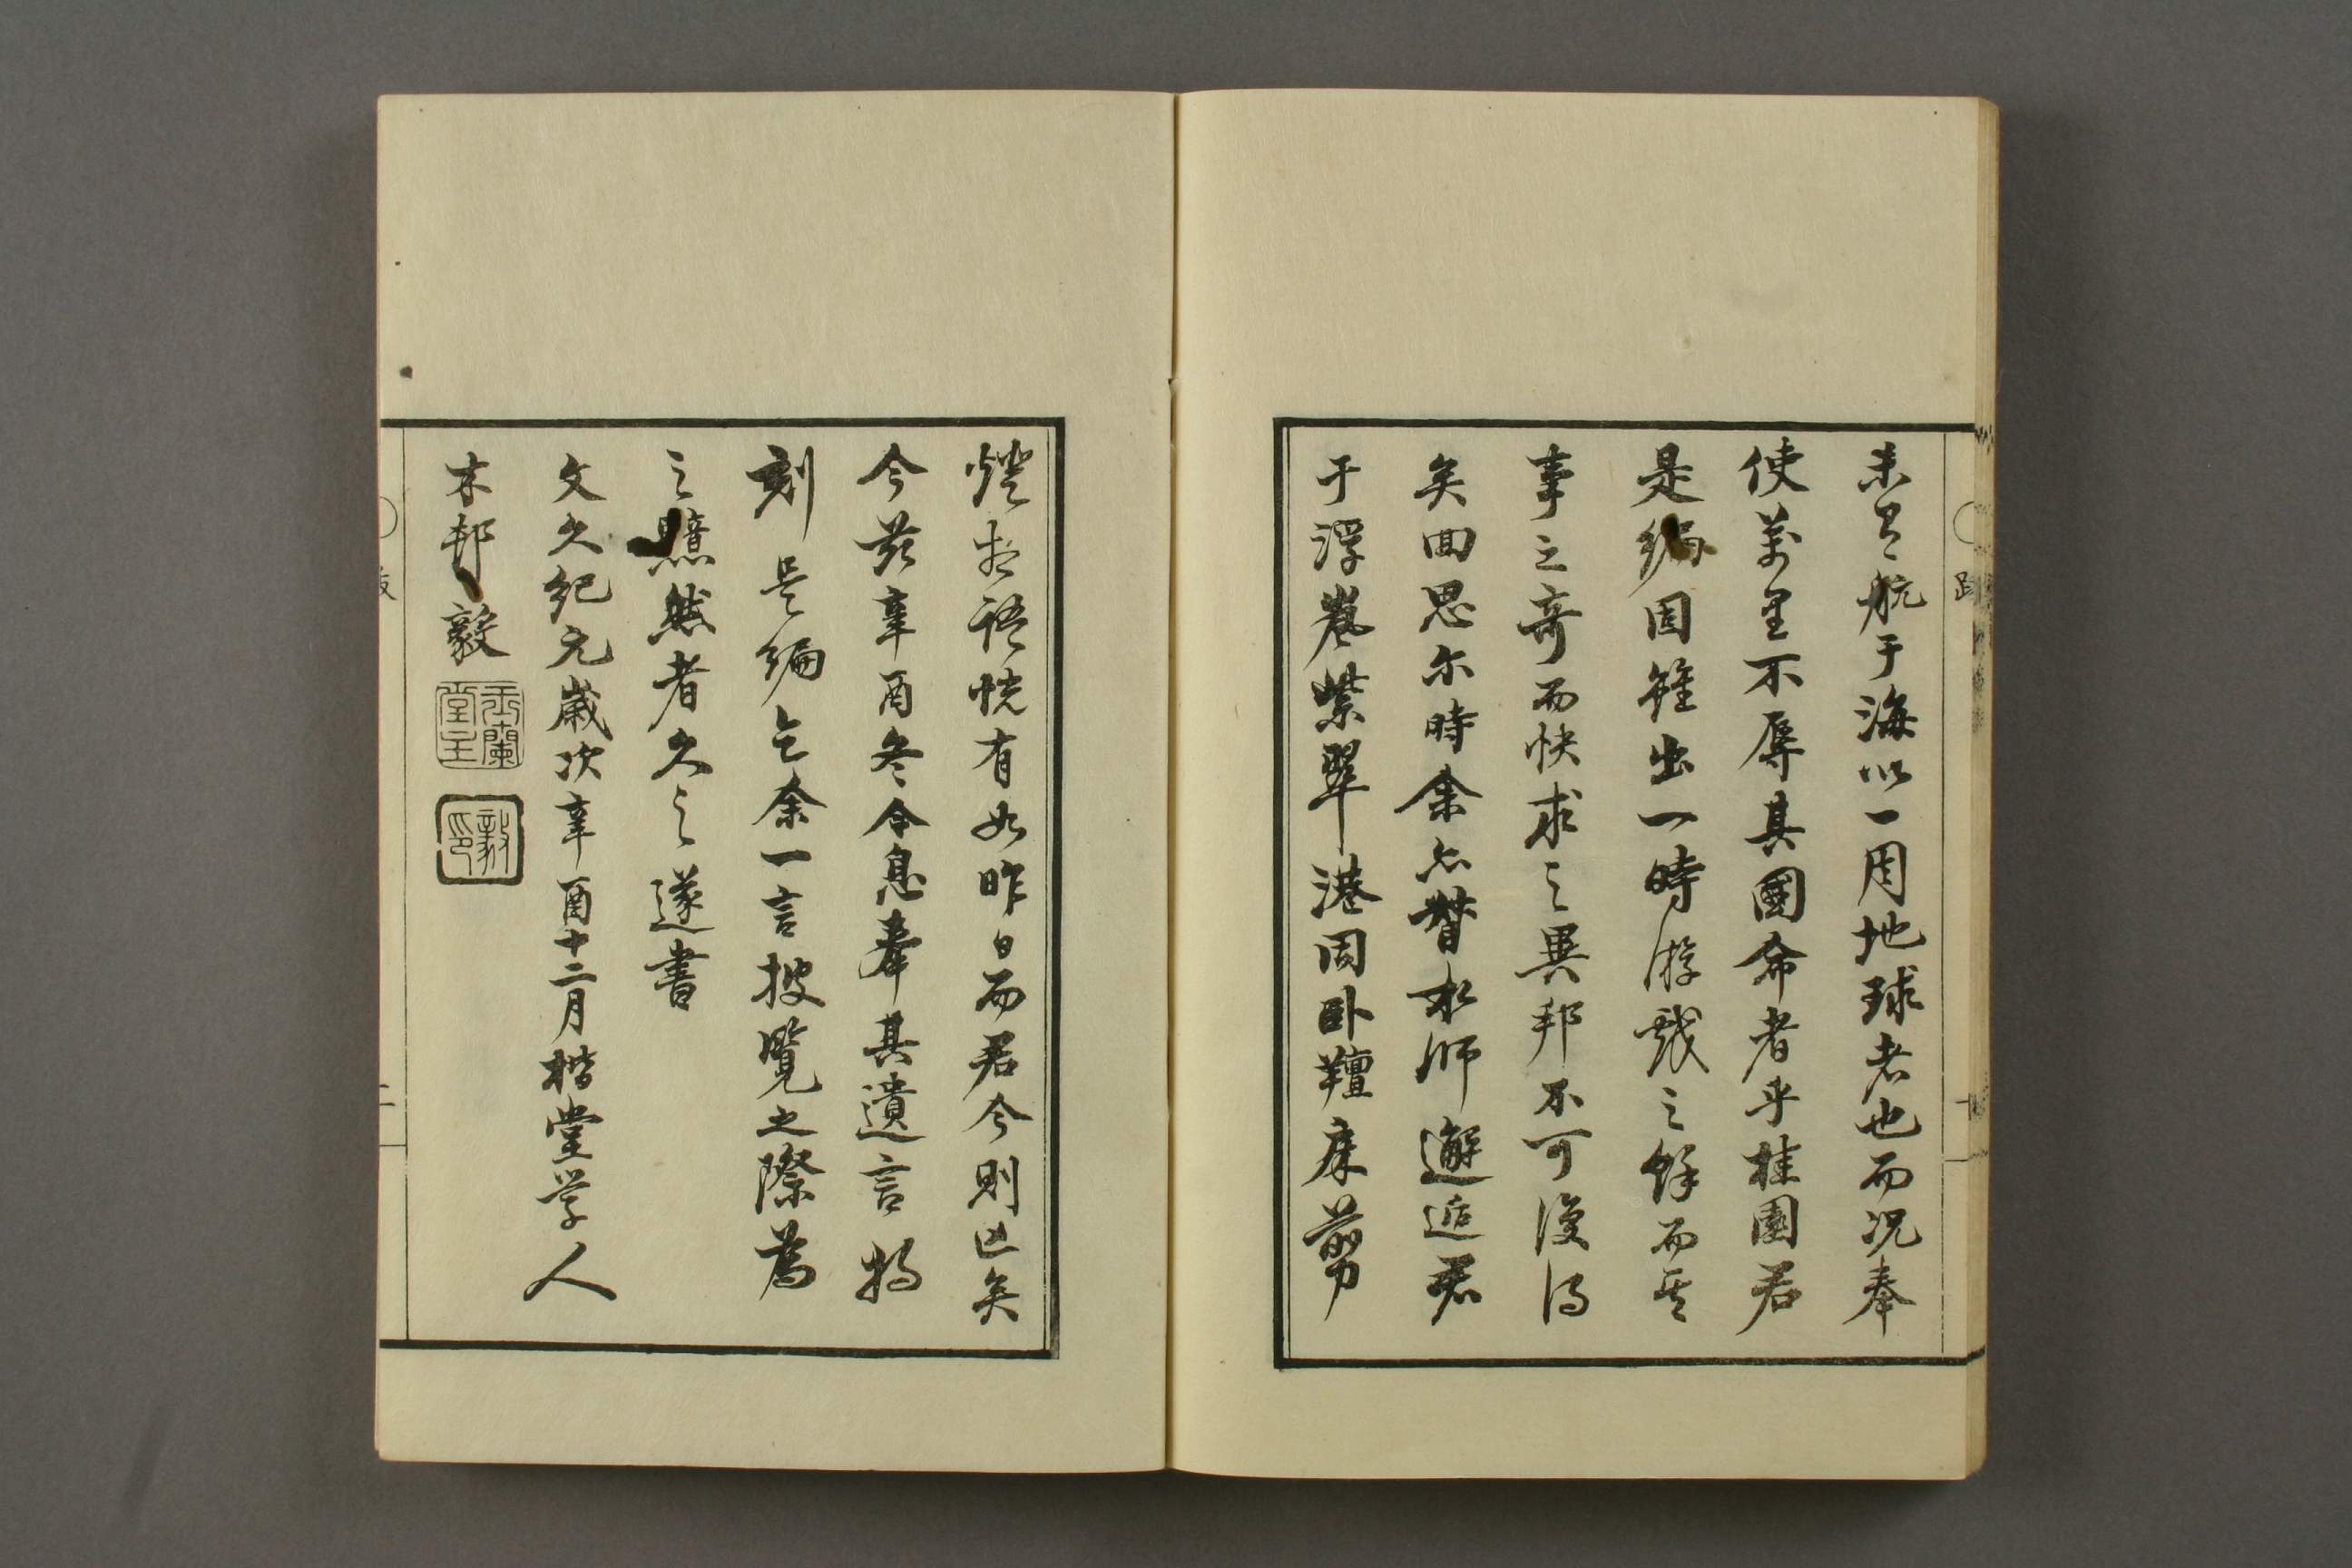 未曽航于海以一周地球者也而況奉
使萬里不辱其國命者乎桂園君
是編固雖出一時游戯之餘而其
事之奇而快求之異邦不可復得
矣回思尓時余亦督水師邂逅君
于浮嵐紫翠港同臥氊床剪
燈敍語恍有如昨日而君今則亡矣
今茲辛酉冬令息奉其遺言将
刻是編乞余一言披覧之際為
之黯然者久之遂書
文久紀元歳次辛酉十二月楷堂学人
木邨毅
玉蘭堂主
毅印
跋
一
跋
二